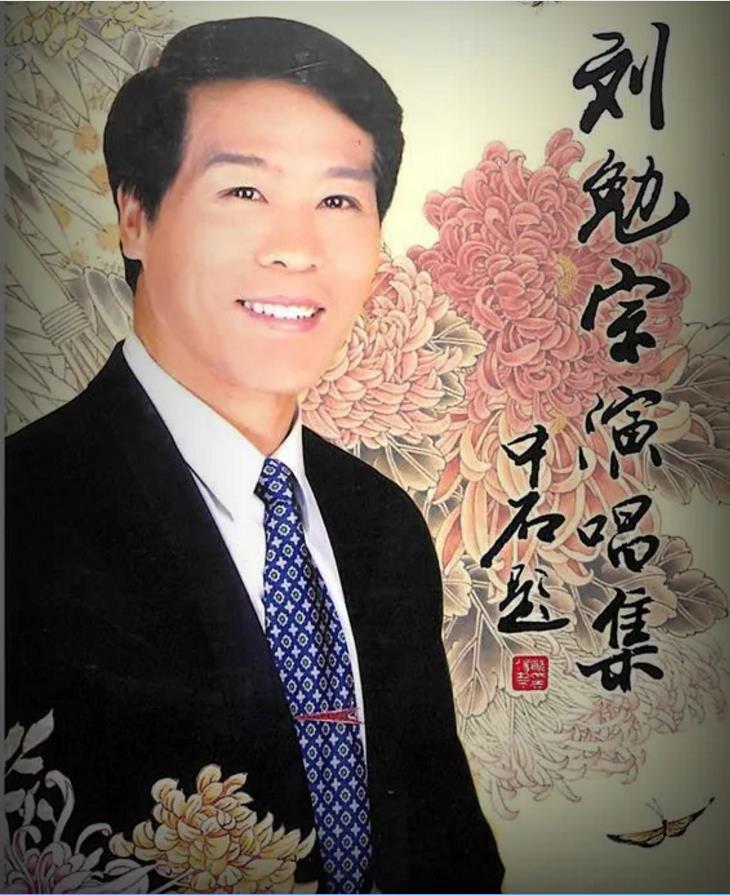 刘勉宗演唱集
中石题